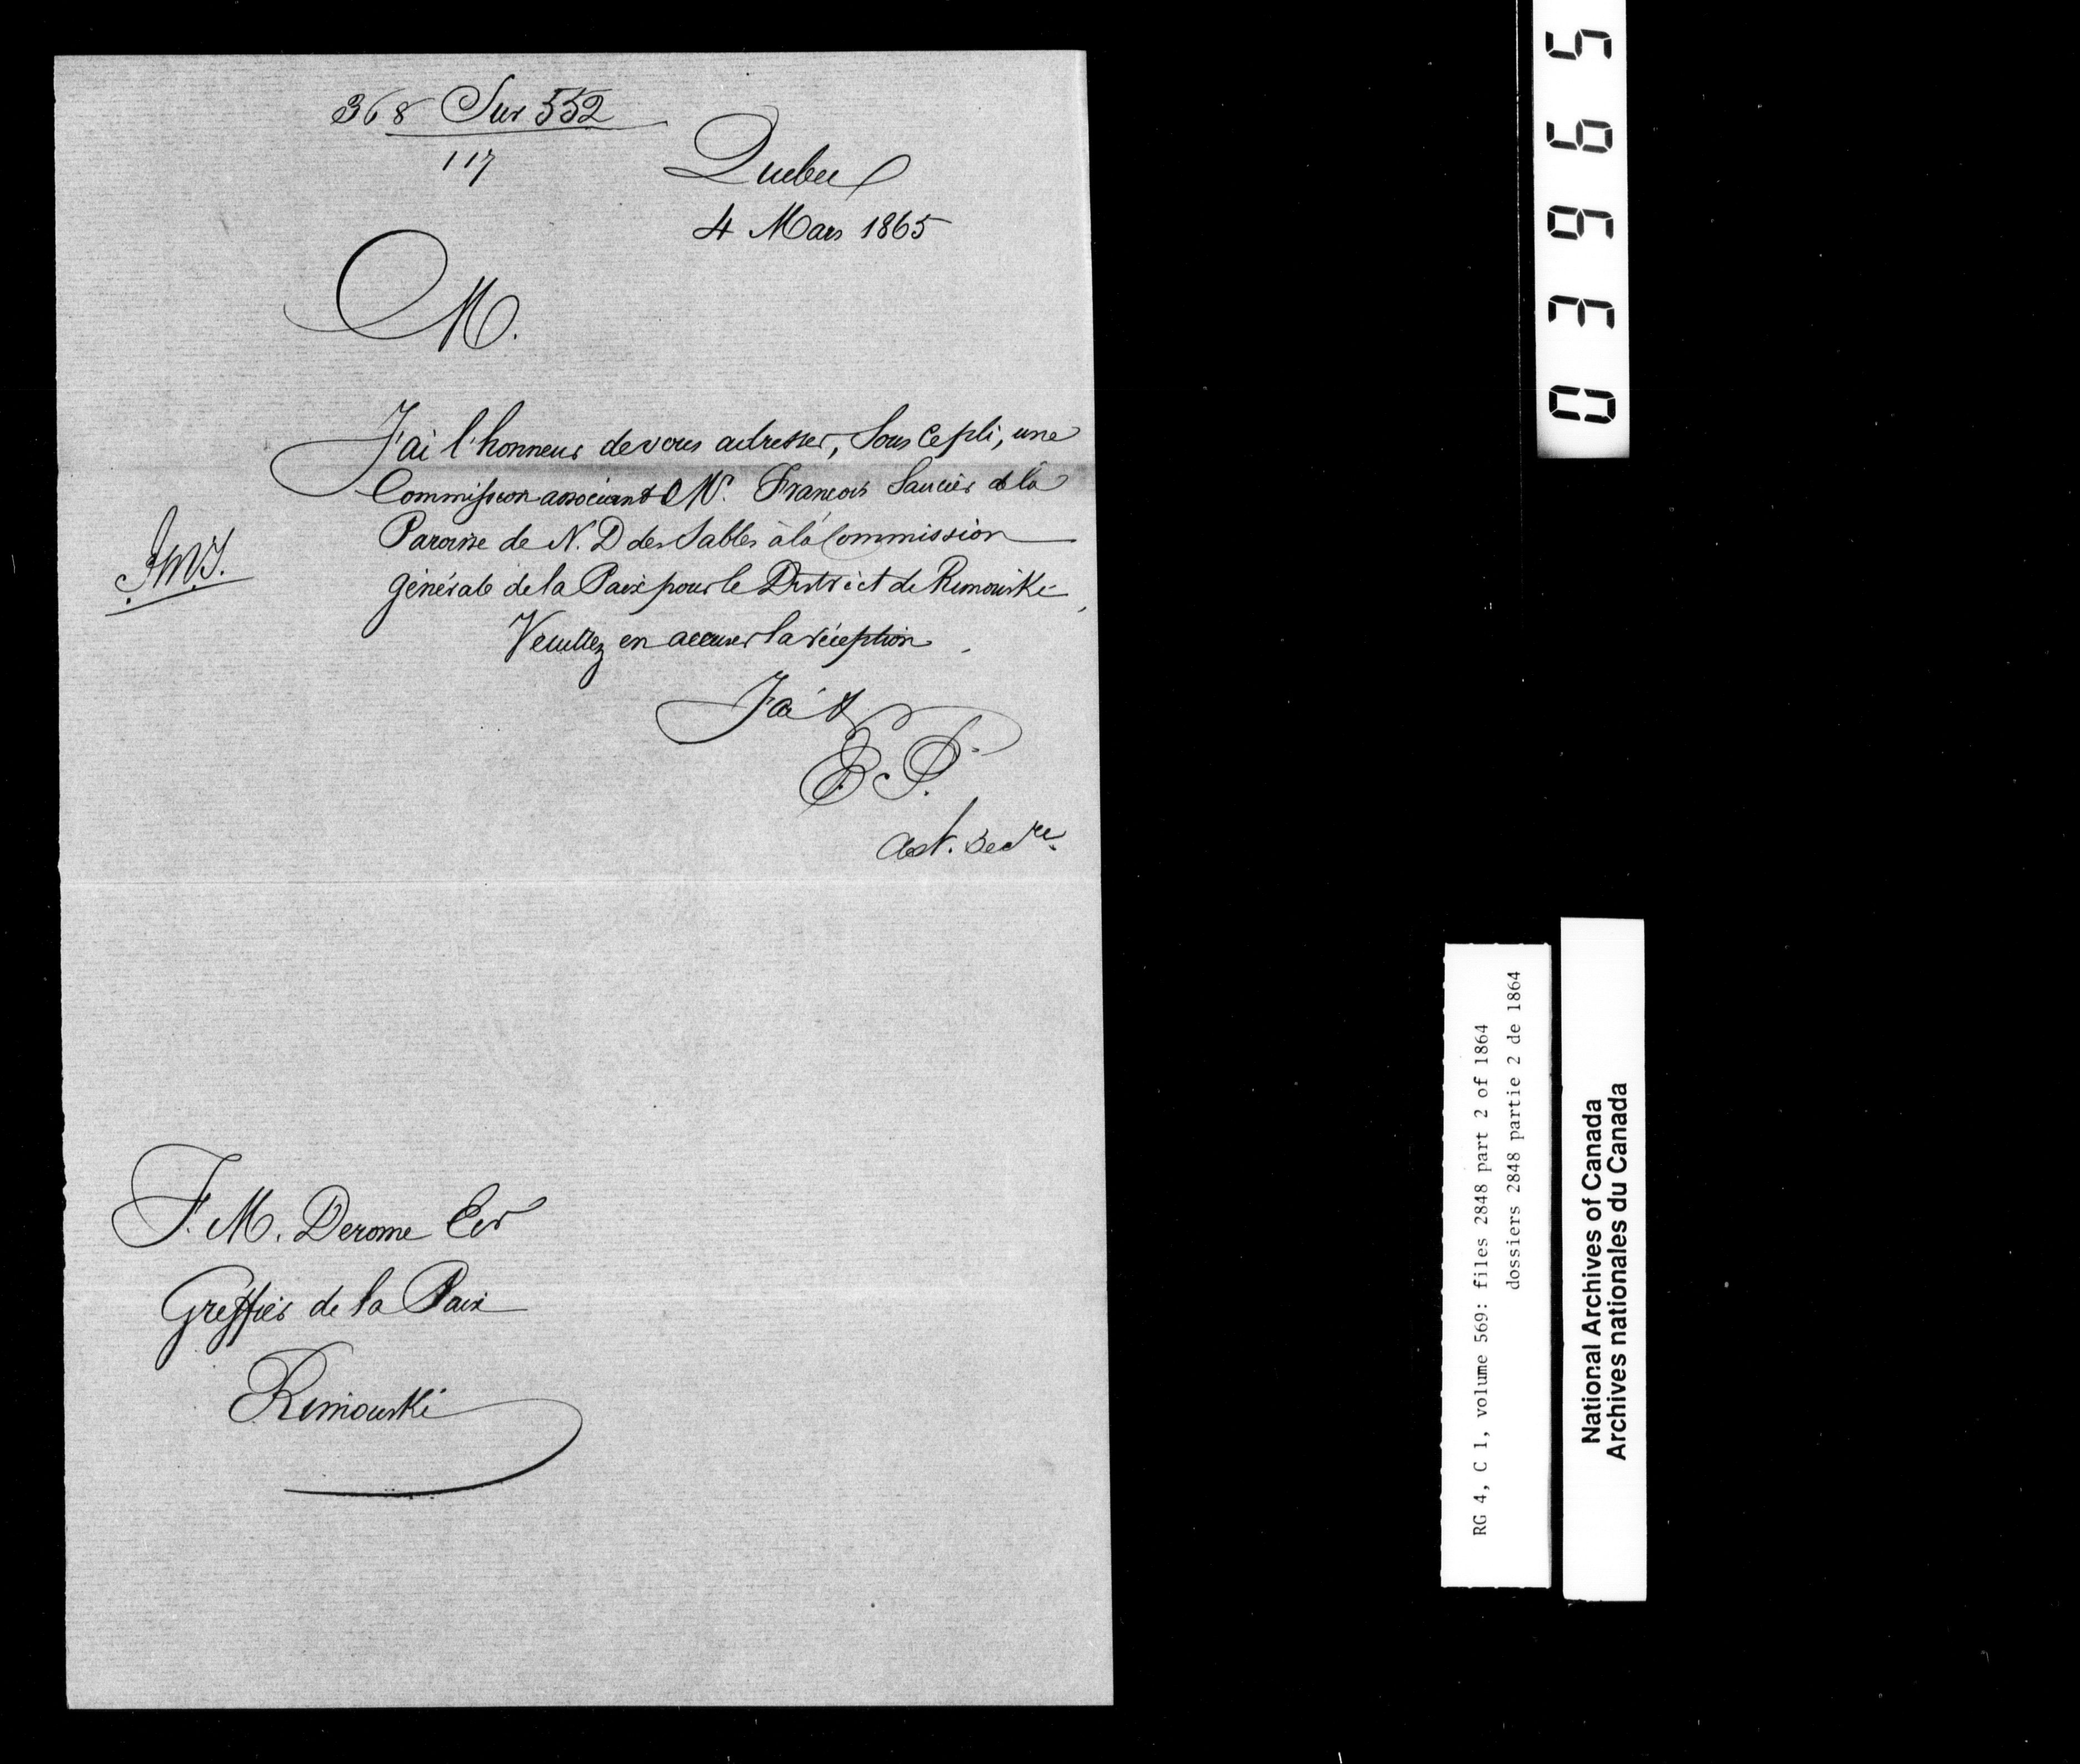 368 Sur 552
117
Quebec
4 Mars 1865
M.
J'ai l'honneur de vous adresser, sous ce pli, une
Commission associant M. François Saucier de la
Paroisse de N. D des Sables à la Commission
générale de la Paix pour le District de Rimouski
Veuillez en accuser la réception
J'ai &
E. P.
Asst. Secre.
F. M. Derome Ecr
Greffier de la Paix
Rimouski
03965
RG 4, C 1, volume 569: files 2848 part 2 of 1864
dossiers 2848 partie 2 de 1864
National Archives of Canada
Archives nationales du Canada